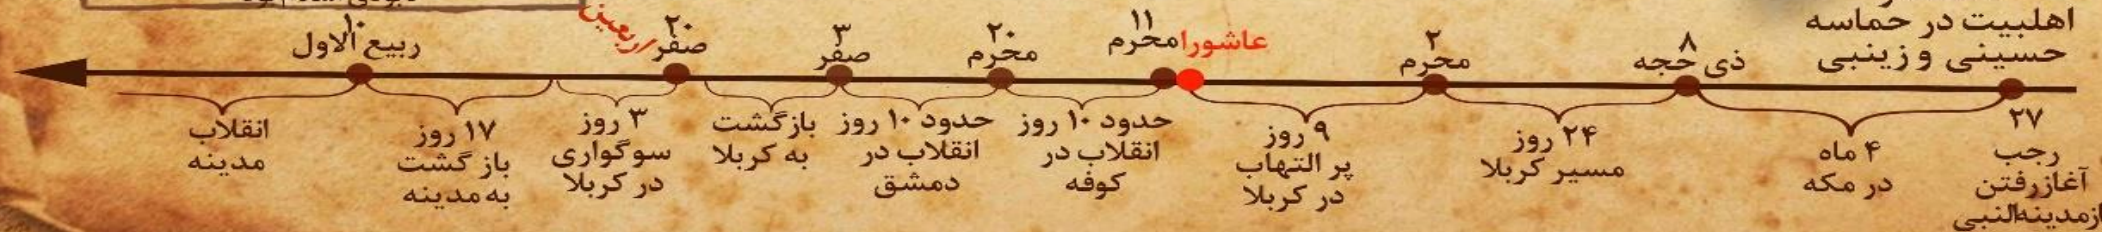 اهلبیت در حماسه
حسینی و زینبی
۲۷
رجب
آغاز رفتن
از مدینه‌النبی
۴ ماه
در مکه
۸
ذی حجه
۲۴ روز
مسیر کربلا
۲
محرم
۹ روز
پر التهاب
در کربلا
عاشورا
۱۱
محرم
حدود ۱۰ روز
انقلاب در
کوفه
۲۰
محرم
حدود ۱۰ روز
انقلاب در
دمشق
۳
صفر
بازگشت
به کربلا
۲۰
صفر
اربعین
۳ روز
سوگواری
در کربلا
۱۷ روز
باز گشت
به مدینه
۱۰
ربیع الاول
انقلاب
مدینه